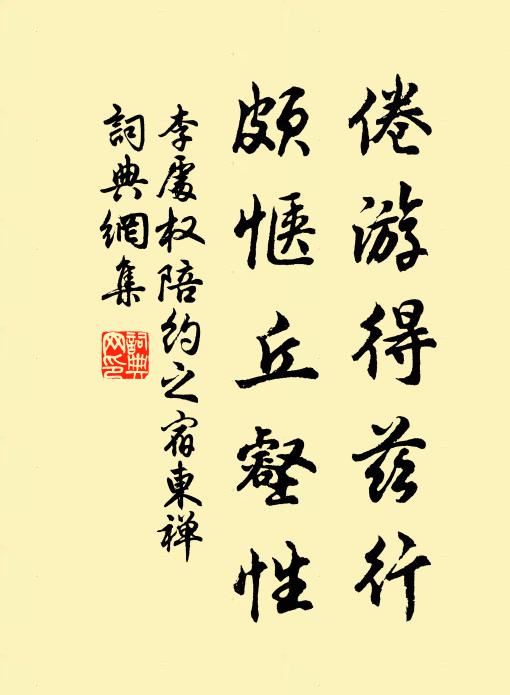 倦游得兹行
颇惬丘壑性
李处权陪约之宿东禅
词典网集
詞典网印